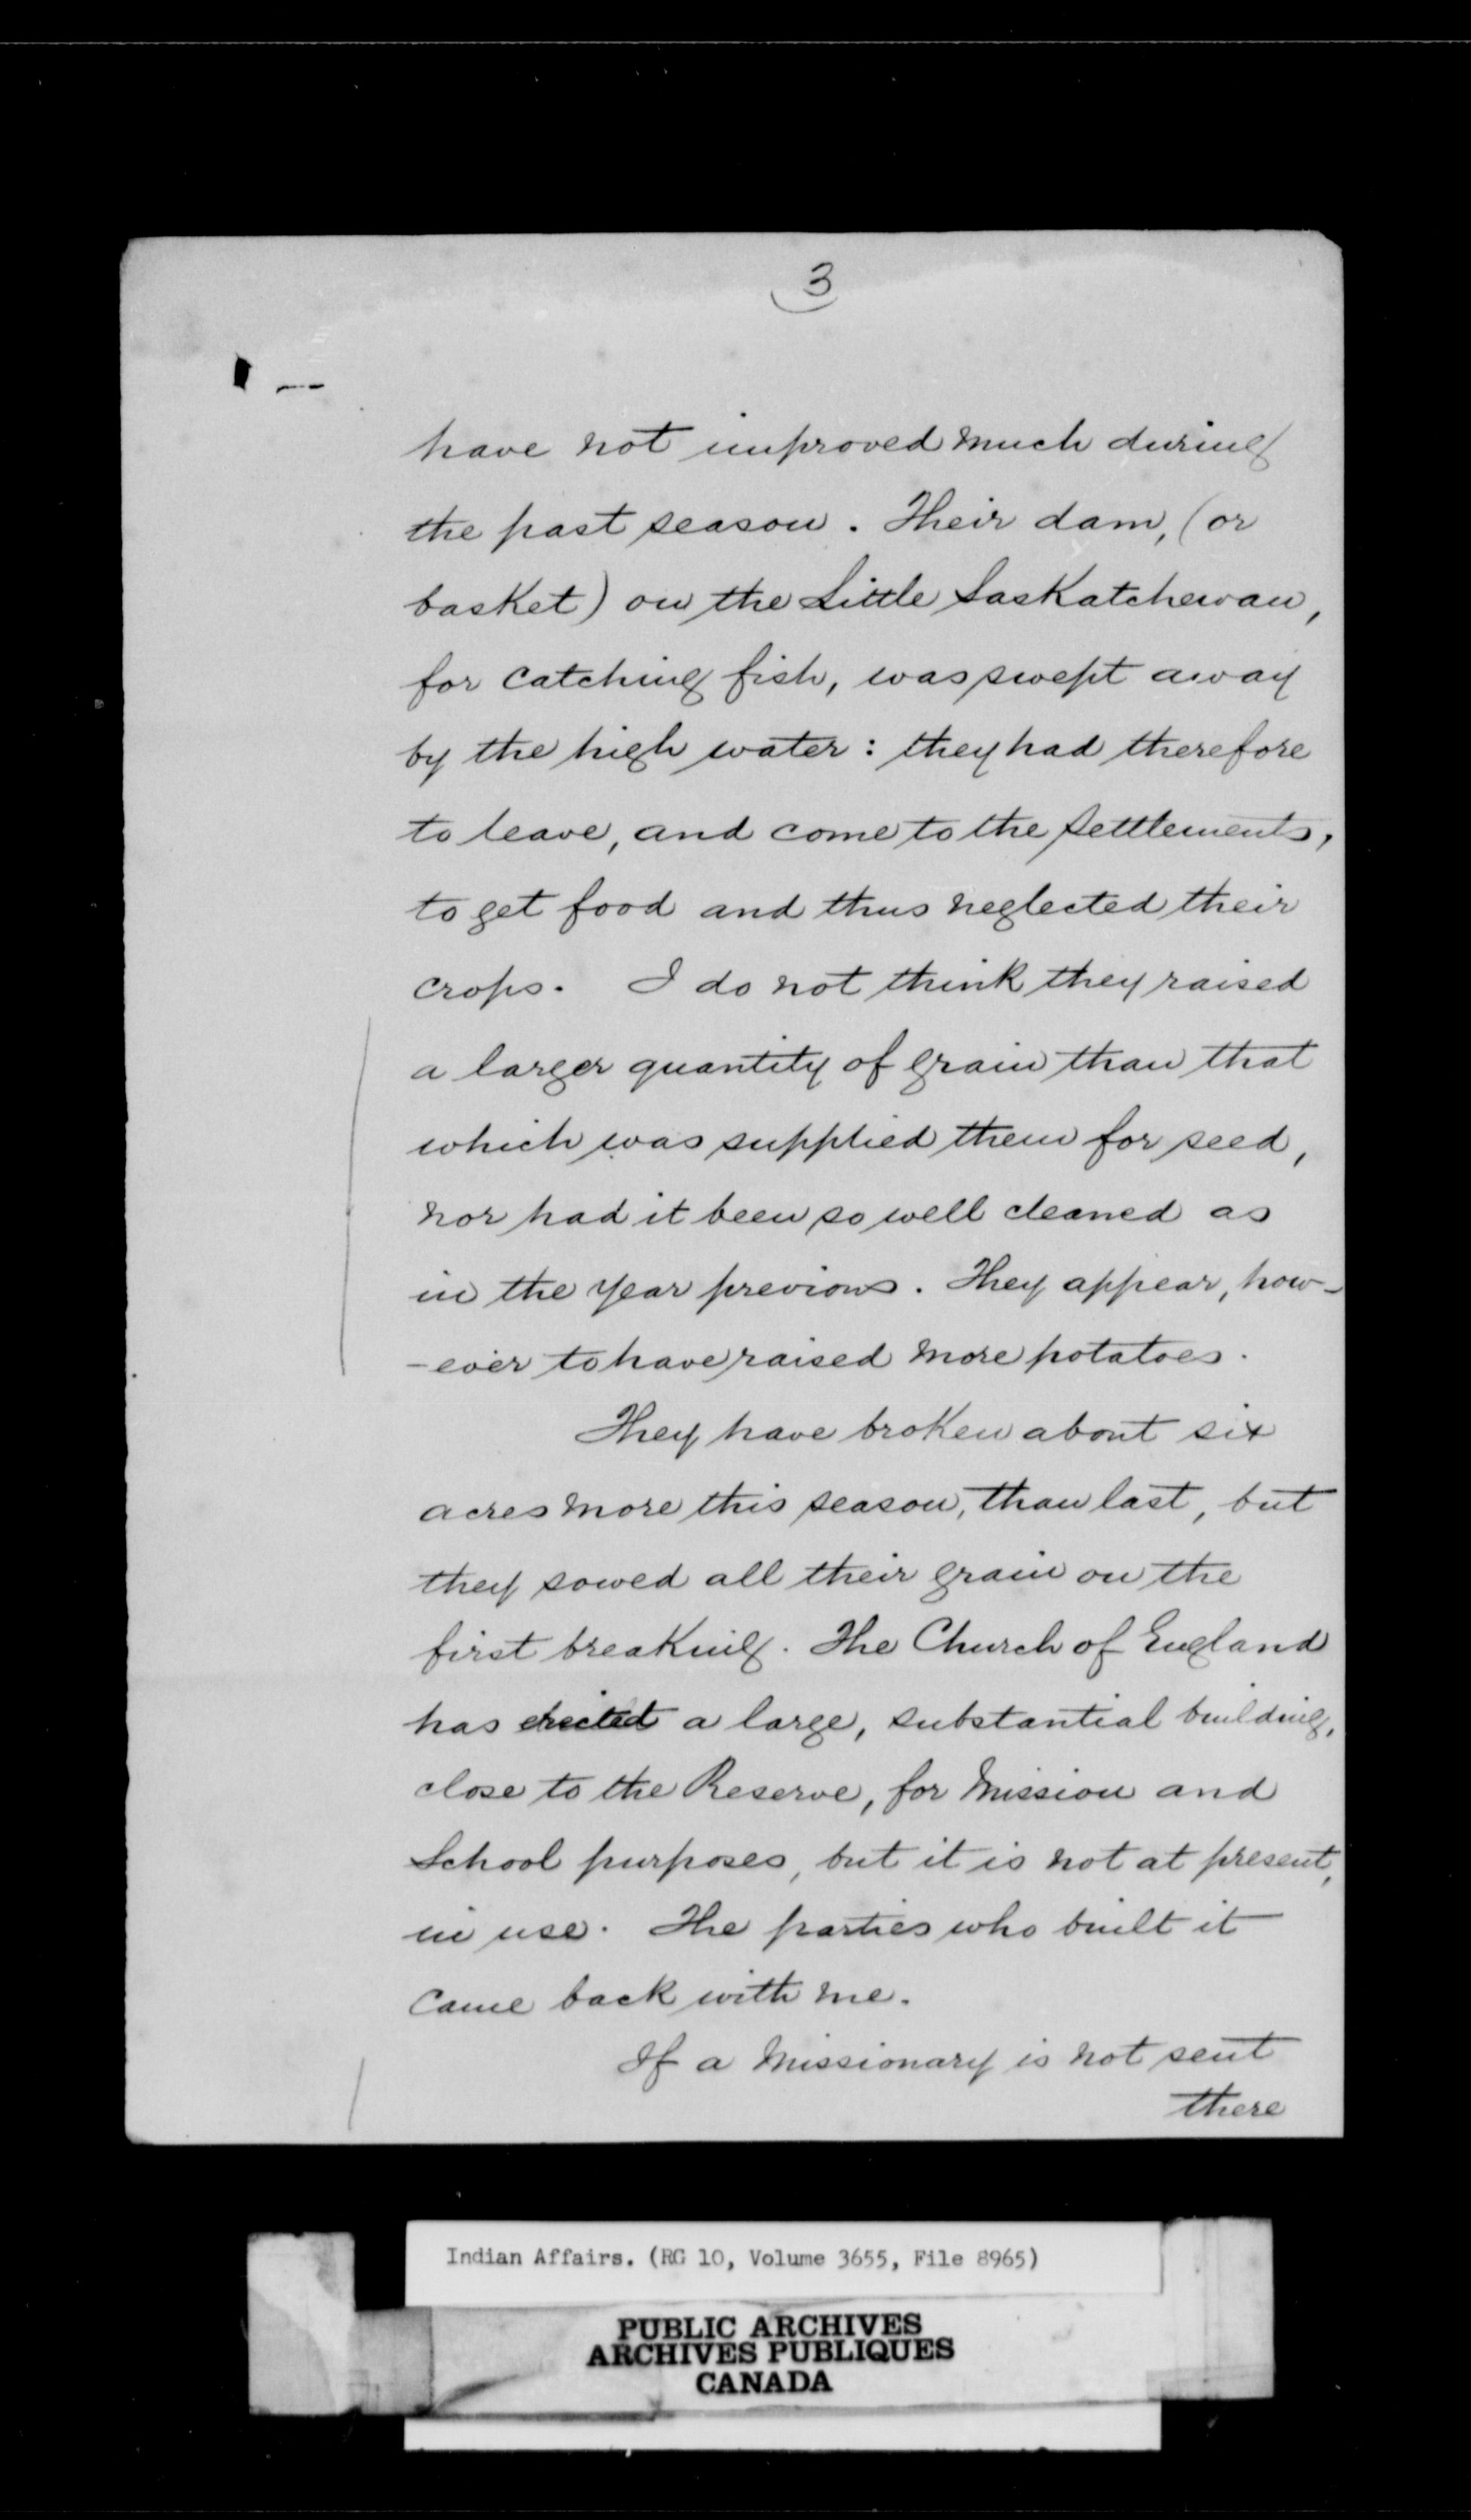 3
have not improved much during
the past season. Their dam, (or
basket) on the Little Saskatchewan,
for catching fish, was swept away
by the high water: they had therefore
to leave, and come to the Settlements,
to get food and thus neglected their
crops. I do not think they raised
a larger quantity of grain than that
which was supplied them for seed,
nor had it been so well cleaned as
in the year previous. They appear, how-
-ever to have raised more potatoes.
They have broken about six
acres more this season, than last, but
they sowed all their grain on the
first breaking. The Church of England
has erected a large, substantial building,
close to the Reserve, for Mission and
School purposes, but it is not at present,
in use. The parties who built it
came back with me.
If a Missionary is not sent
there
Indian Affairs. (RG 10, Volume 3655, File 8965)
PUBLIC ARCHIVES
ARCHIVES PUBLIQUES
CANADA